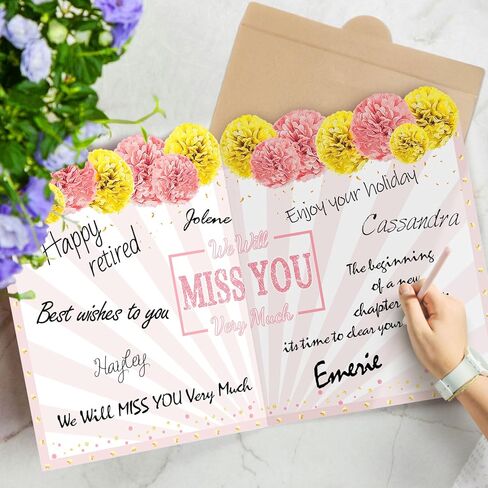 Happy
retired
Jolene
Best wishes to you
Hayley
We Will MISS YOU Very Much
We Will
MISS YOU
Very Much
Enjoy your holiday
Cassandra
The beginning
of a new
chapter
its time to clear your
Emerie